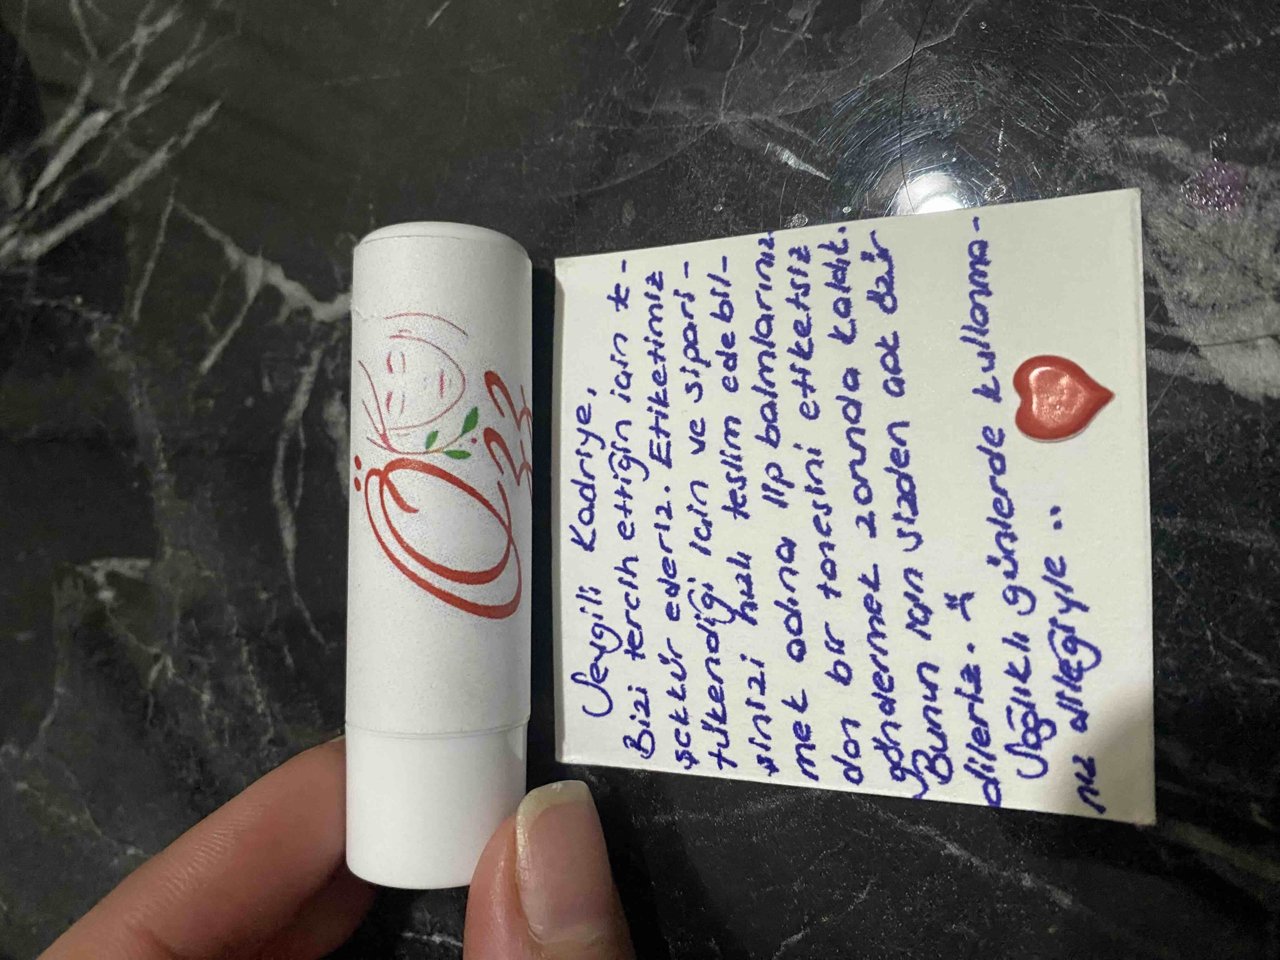 Özz
Sevgili Kadriye,
Bizi tercih ettiğin için te-
şekkür ederiz. Etiketimiz
tükendiği için ve sipari-
şinizi hızlı teslim edebil-
mek adına lip balmlarınız
dan bir tanesini etiketsiz
göndermek zorunda kaldık.
Bunun için sizden çok özür
dileriz.
Sağlıklı günlerde kullanma-
nız dileğiyle..